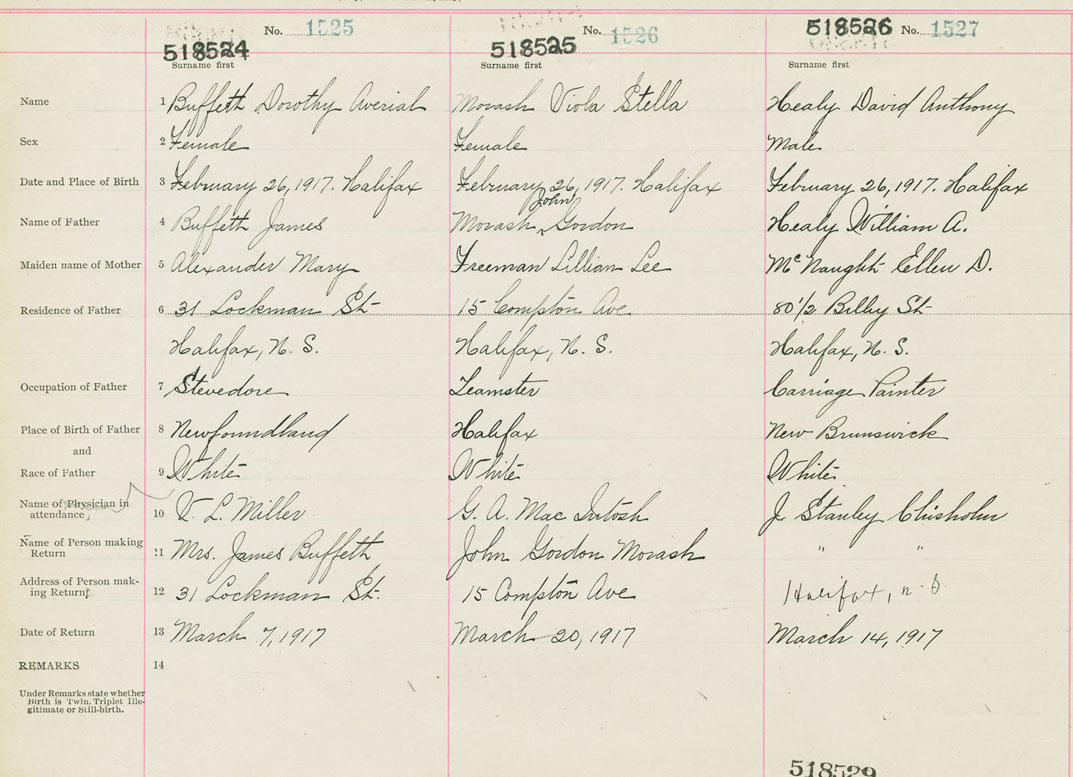 No. 1525 No. 1526 518526 No. 1527
518524 518525
Surname first Surname first Surname first
Name 1 Buffeth Dorothy Averial Morash Viola Stella Healy David Anthony
Sex 2 Female Female Male
Date and Place of Birth 3 February 26, 1917. Halifax February 26, 1917. Halifax February 26, 1917. Halifax
John
Name of Father 4 Buffeth James Morash ‸ Gordon Healy William A.
Maiden name of Mother 5 Alexander Mary Freeman Lillian Lee McNaught Ellen D.
Residence of Father 6 31 Lockman St. 15 Compton Ave. 80 1/2 Bilby St.
Halifax, N. S. Halifax, N. S. Halifax, N. S.
Occupation of Father 7 Stevedore Teamster Carriage Painter
Place of Birth of Father 8 Newfoundland Halifax New Brunswick
and
Race of Father 9 White White White
Name of Physician in
attendance 10 V. L. Miller G. A. Mac Intosh J. Stanley Chisholm
Name of Person making
Return 11 Mrs. James Buffeth John Gordon Morash " "
Address of Person mak-
ing Return 12 31 Lockman St. 15 Compton Ave Halifax, n. S
Date of Return 13 March 7, 1917 March 20, 1917 March 14, 1917
REMARKS 14
Under Remarks state whether
Birth is Twin, Triplet Ille-
gitimate or Still-birth.
518529